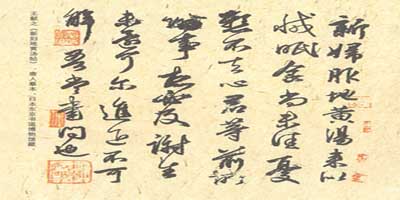 新婦服地黄湯来似
減眠食尚未佳憂
懸不去心君等前所
論事想必及謝生
未還可尔進退不可
解吾當書問也
王献之《新妇地黄汤帖》，唐人摹本，日本东京书道博物馆藏。